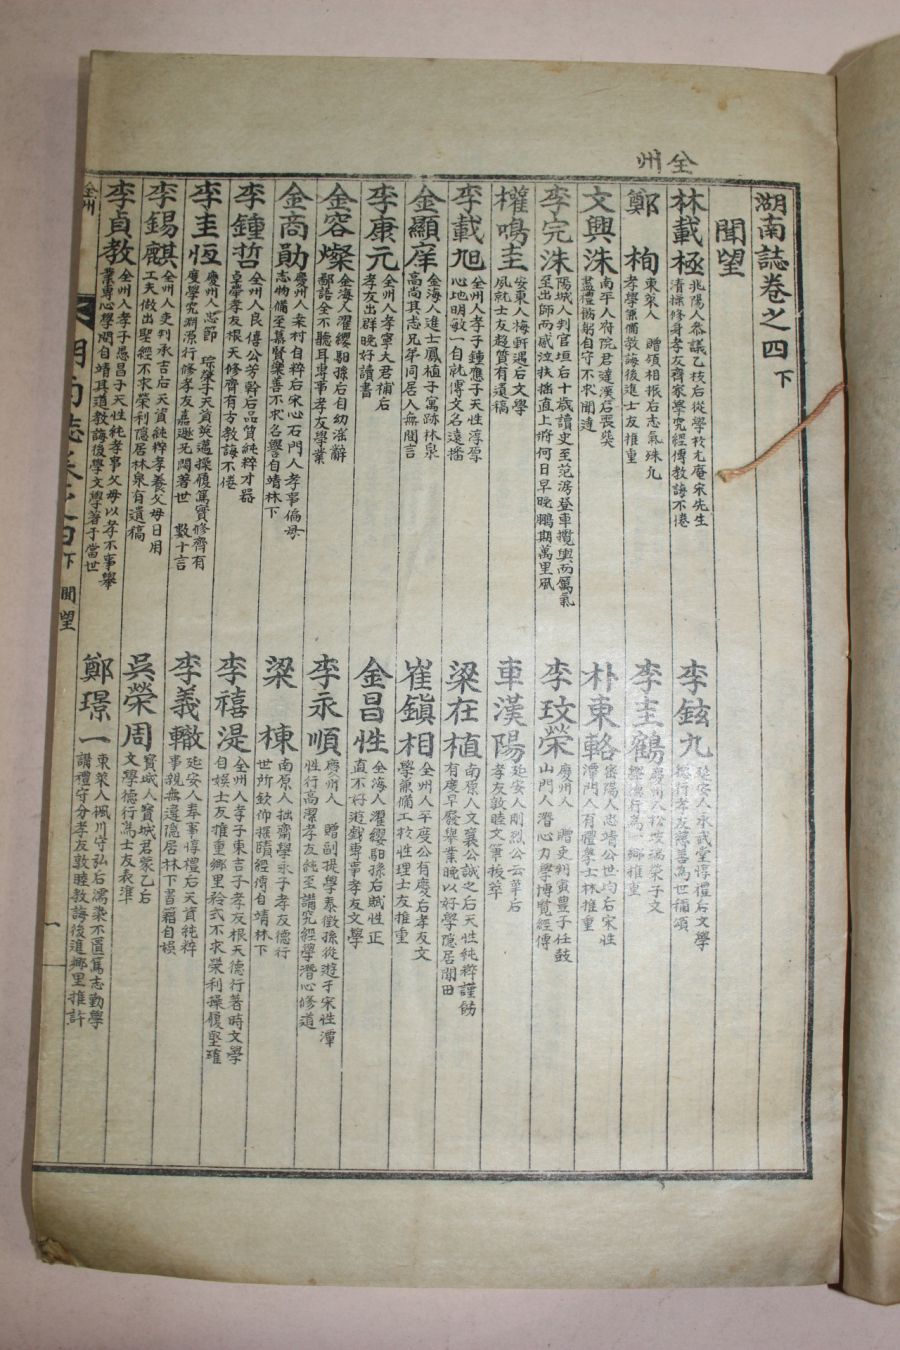 全州
湖南誌卷之四 下
聞望
林載極 兆陽人參議乙枝后從學杖尤庵宋先生
清操修身孝友齊家學究經傳教誨不倦
李鉉九 延安人承武堂惇禮后文學
德行孝友慈善爲世稱頌
鄭枸 東萊人 贈領相振后志氣殊凡
孝學兼備教誨後進士友推重
李圭鶴
文學德行爲一鄉推重
文興洙 南平人府院君達漢后喪葬
盡禮
自守不求聞達
朴東輅 密陽人忠靖公世均后宋性
潭門人有禮學士林推重
李完洙 陽城人判官垣后十歲讀史至范滂登車攬輿而厲氣
至出師而感泣扶拙直上將何日早晚鵬期萬里風
李玟榮 慶州人 贈吏判寅豊子任鼓
山門人潛心力學博覽經傳
權鳴圭 安東人梅軒遇后文學
夙就士友趍賞有遺稿
車漢陽 延安人剛烈公云革后
孝友敦睦文筆拔萃
李載旭 全州人孝子鍾應子天性淳厚
心地明敏一自就傅文名遠播
梁在植 南原人文襄公誠之后天性純粹謹飭
有度早廢擧業晚以好學隱居閒田
金顯庠 金海人進士鳳植子寓跡林泉
高尚其志兄弟同居人無間言
崔鎭相 全州人平度公有慶后孝友文
學兼備工杖性理士友推重
李康元 全州人孝寧大君補后
孝友出群晚好讀書
金昌性 金海人濯纓馹孫后賦性正
直不好遊戲專事孝友文學
金容燦 金海人濯纓馹孫后自幼淫辭
鄙語全不聽耳專事孝友學業
李永順 慶州人 贈副提學泰徵孫從遊于宋性潭
性行高潔孝友純至講究經學潛心修道
金商勛 慶州人桑村自粹后宋心石門人孝事偏母
志物備至慕賢樂善不求名譽自靖林下
梁棟 南原人拙齋學永子孝友德行
世所欽仰探賾經傳自靖林下
李鍾哲 全州人良僖公芳幹后品質純粹才器
卓犖孝友根天修齊有方教誨不倦
李禧湜 全州人孝子東吉子孝友根天德行著時文學
自娛士友推重鄉里矜式不求榮利操履堅確
李圭恆 慶州人忠節 琮肇子天質英邁操履篤實修齊有
度學究淵源行修孝友嘉遯光閭著世 數十言
李義轍 延安人奉事惇禮后天資純粹
事親無違隱居林下書籍自娛
李錫麒 全州人吏判承吉后天資純粹孝養父母日用
工夫做出聖經不求榮利隱居林泉有遺稿
吳榮周 寶城人寶城君蒙乙后
文學德行爲士友表準
李貞教 全州人孝子愚昌子天性純孝事父母以孝不事擧
業專心學問自靖其道教誨後學文學著于當世
鄭璟一 東萊人楓川守弘后濡染不匱篤志勤學
講禮守分孝友敦睦教誨後進鄉里推許
全州 湖南誌卷之四下 聞望 一